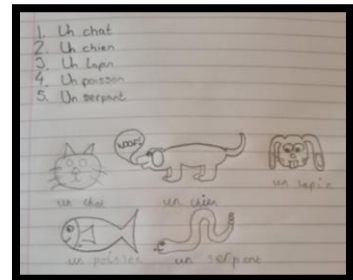 1. Un chat
2. Un chien
3. Un Lapin
4. Un poisson
5. Un serpant
WOOF!
un chat
un chien
un lapin
un poisson
un serpant